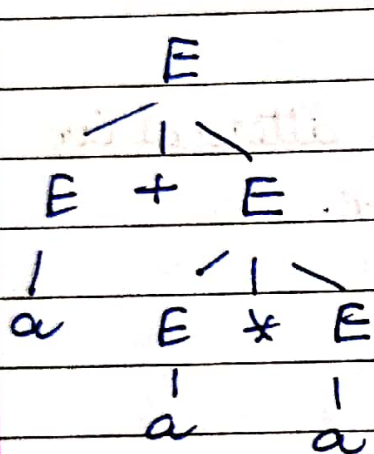 E
E + E
a E * E
a a